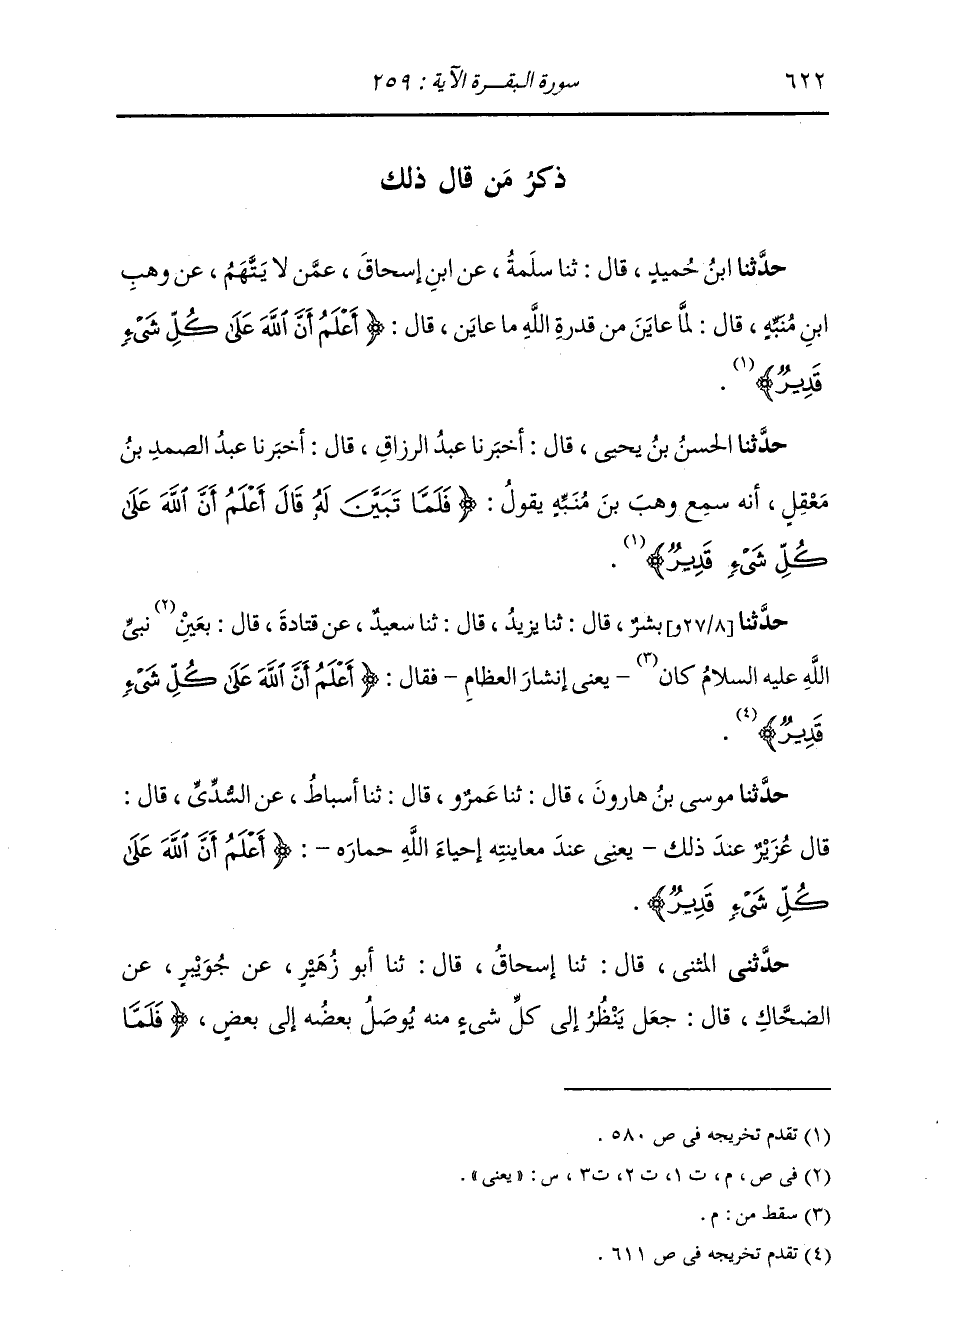 ٦٢٢ سورة البقـرة الآية : ٢٥٩
ذكرُ مَن قال ذلك
حدَّثنا ابنُ حُميدٍ ، قال : ثنا سلَمةُ ، عن ابنِ إسحاقَ ، عمَّن لا يَتَّهِمُ ، عن وهبِ
ابنِ مُنَبِّهٍ ، قال : لمَّا عايَنَ من قدرةِ اللَّهِ ما عايَن ، قال : ﴿ أَعْلَمُ أَنَّ ٱللَّهَ عَلَىٰ كُلِّ شَىْءٍ
قَدِيرٌ ﴾(١) .
حدَّثنا الحسنُ بنُ يحيى ، قال : أخبَرنا عبدُ الرزاقِ ، قال : أخبَرنا عبدُ الصمدِ بنُ
مَعْقِلٍ ، أنه سمِع وهبَ بنَ مُنَبِّهٍ يقولُ : ﴿ فَلَمَّا تَبَيَّنَ لَهُۥ قَالَ أَعْلَمُ أَنَّ ٱللَّهَ عَلَىٰ
كُلِّ شَىْءٍ قَدِيرٌ ﴾(١) .
حدَّثنا [٢٧/٨و] بشرٌ ، قال : ثنا يزيدُ ، قال : ثنا سعيدٌ ، عن قتادةَ ، قال : بعَيْنِ(٢) نبىِّ
اللَّهِ عليه السلامُ كان(٣) – يعنى إنشارَ العظامِ – فقال : ﴿ أَعْلَمُ أَنَّ ٱللَّهَ عَلَىٰ كُلِّ شَىْءٍ
قَدِيرٌ ﴾(٤) .
حدَّثنا موسى بنُ هارونَ ، قال : ثنا عَمرٌو ، قال : ثنا أسباطُ ، عن السُّدِّىِّ ، قال :
قال عُزَيْرٌ عندَ ذلك – يعنى عندَ معاينتِه إحياءَ اللَّهِ حمارَه – : ﴿ أَعْلَمُ أَنَّ ٱللَّهَ عَلَىٰ
كُلِّ شَىْءٍ قَدِيرٌ ﴾ .
حدَّثنى المثنى ، قال : ثنا إسحاقُ ، قال : ثنا أبو زُهَيْرٍ ، عن جُوَيْبرٍ ، عن
الضحَّاكِ ، قال : جعَل يَنْظُرُ إلى كلِّ شىءٍ منه يُوصَلُ بعضُه إلى بعضٍ ، ﴿ فَلَمَّا
(١) تقدم تخريجه فى ص ٥٨٠ .
(٢) فى ص ، م ، ت ١، ت ٢، ت٣ ، س : « يعنى » .
(٣) سقط من : م .
(٤) تقدم تخريجه فى ص ٦١١ .